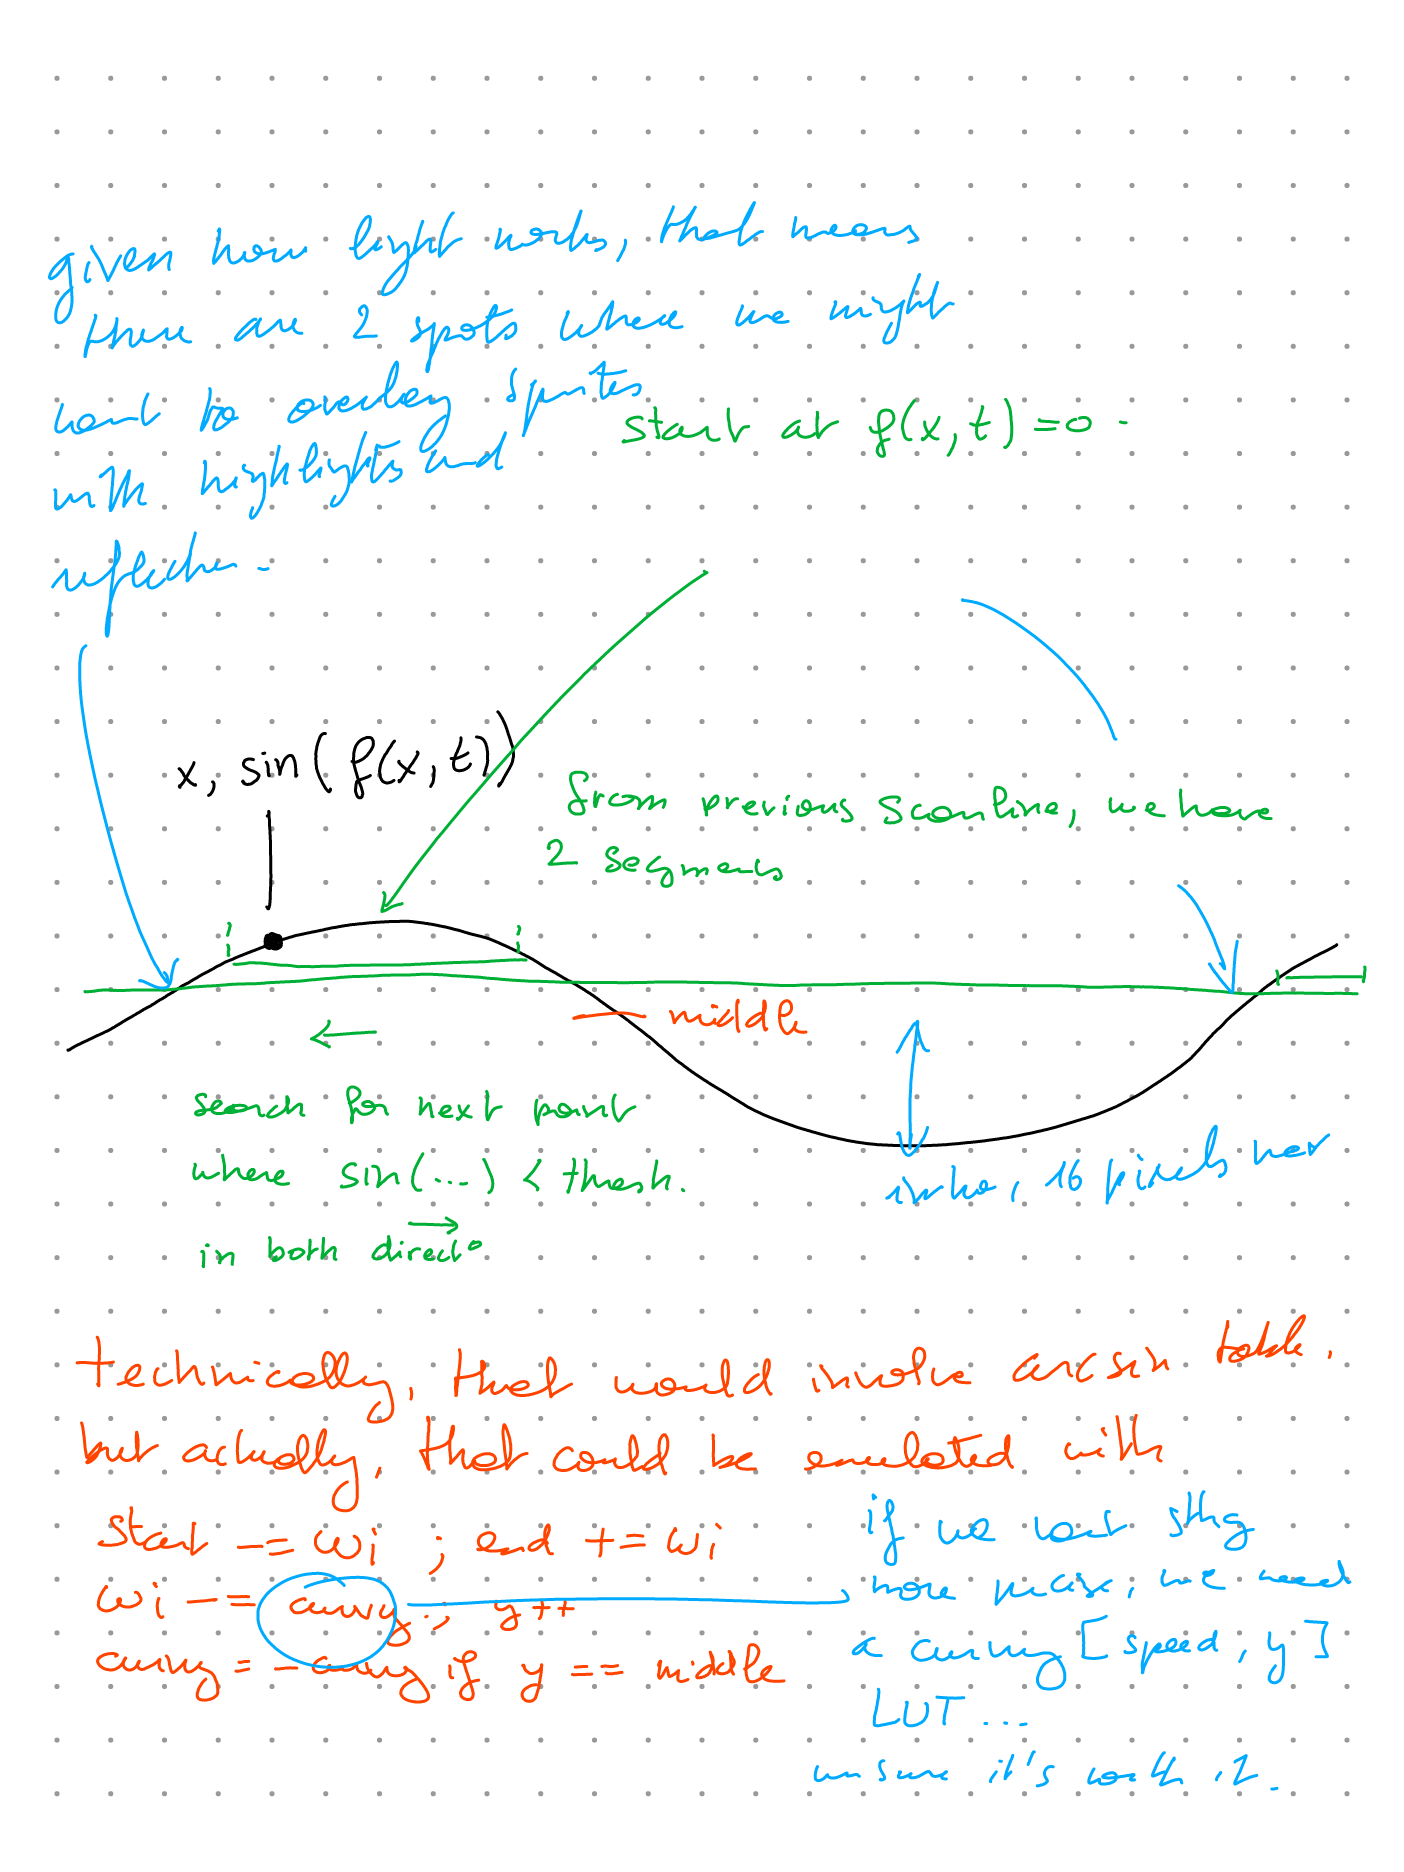 given how light works, that means
there are 2 spots where we might
want to overlay sprites
with highlights and
reflection.
start at f(x,t)=0
x, sin(f(x,t))
from previous scanline, we have
2 segments
middle
search for next point
where sin(...) < thresh.
in both direct°
imho, 16 pixels
technically, that would involve arcsin table.
but actually, that could be emulated with
start -= wi ; end += wi
wi -= curvy ; y++
curvy = -curvy if y == middle
if we want sthg
more precise, we need
a curvy [speed, y]
LUT...
unsure it's worth it.